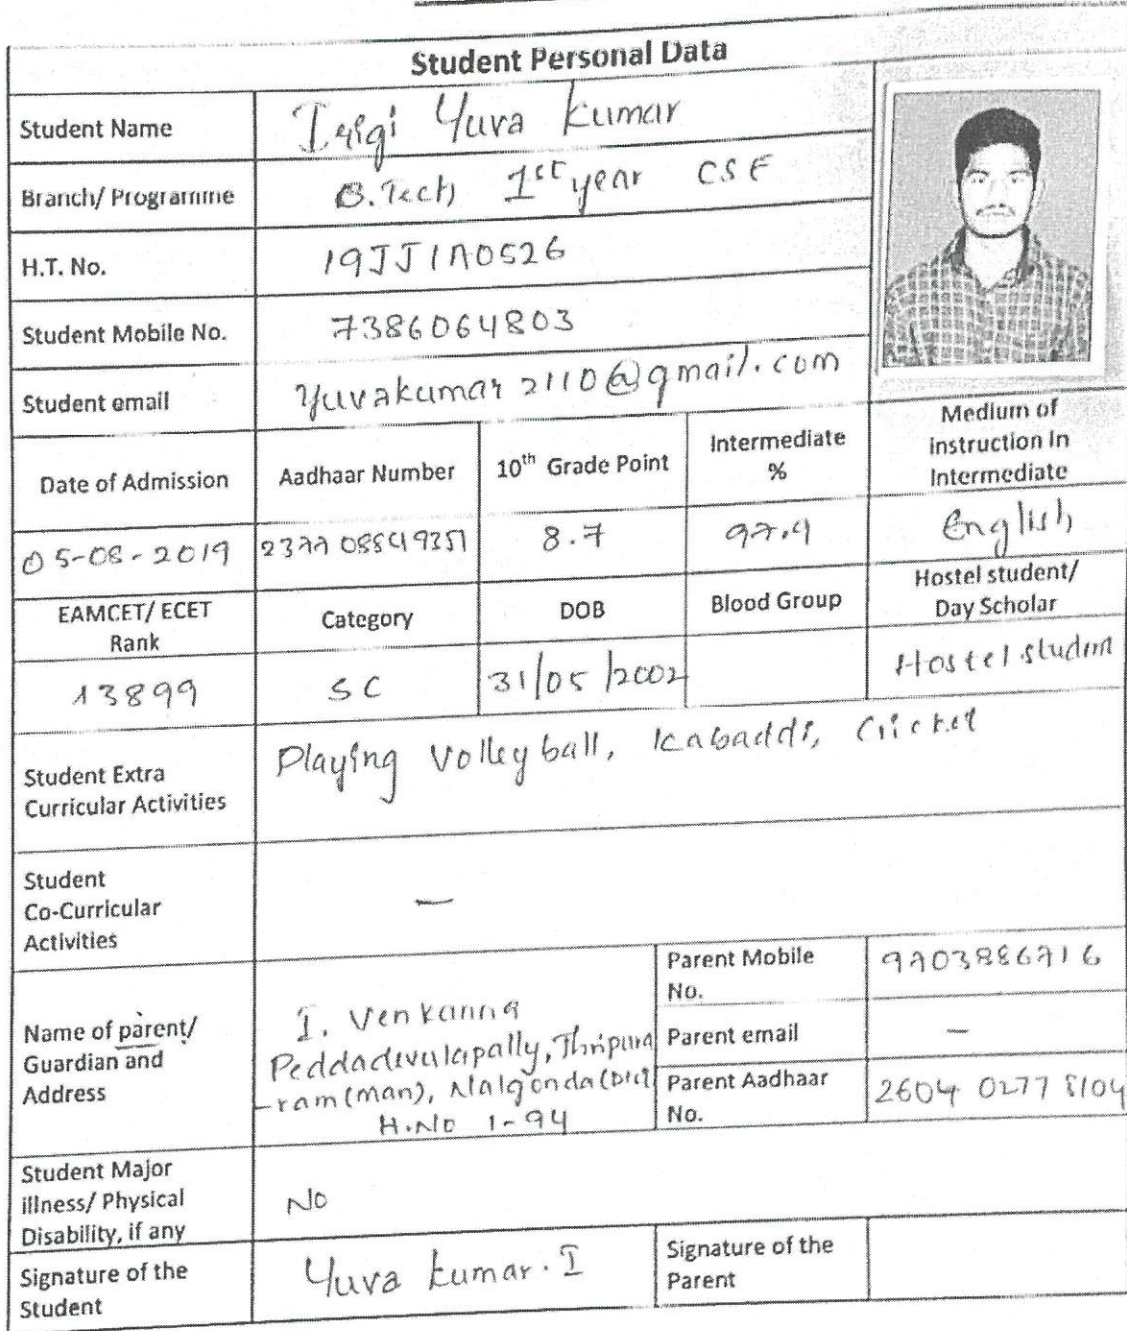 Student Personal Data
Student Name
Yuva kumar
Branch/ Programme
B.Tech 1st year CSE
H.T. No.
19JJ1A0526
Student Mobile No.
7386064803
Student email
yuvakumar2110@gmail.com
Date of Admission
Aadhaar Number
10th Grade Point
Intermediate
%
Medium of
instruction in
Intermediate
05-08-2019
8.7
English
EAMCET/ ECET
Rank
Category
DOB
Blood Group
Hostel student/
Day Scholar
13899
SC
31/05/2002
Hostel student
Student Extra
Curricular Activities
Playing Volleyball, Kabaddi, Cricket
Student
Co-Curricular
Activities
—
Name of parent/
Guardian and
Address
I. Venkanna
Peddadevulapally, Thripura
-ram (man), Nalgonda (Dist)
H.No 1-94
Parent Mobile
No.
Parent email
—
Parent Aadhaar
No.
2604 0277 8104
Student Major
illness/ Physical
Disability, if any
No
Signature of the
Student
Yuva kumar. I
Signature of the
Parent